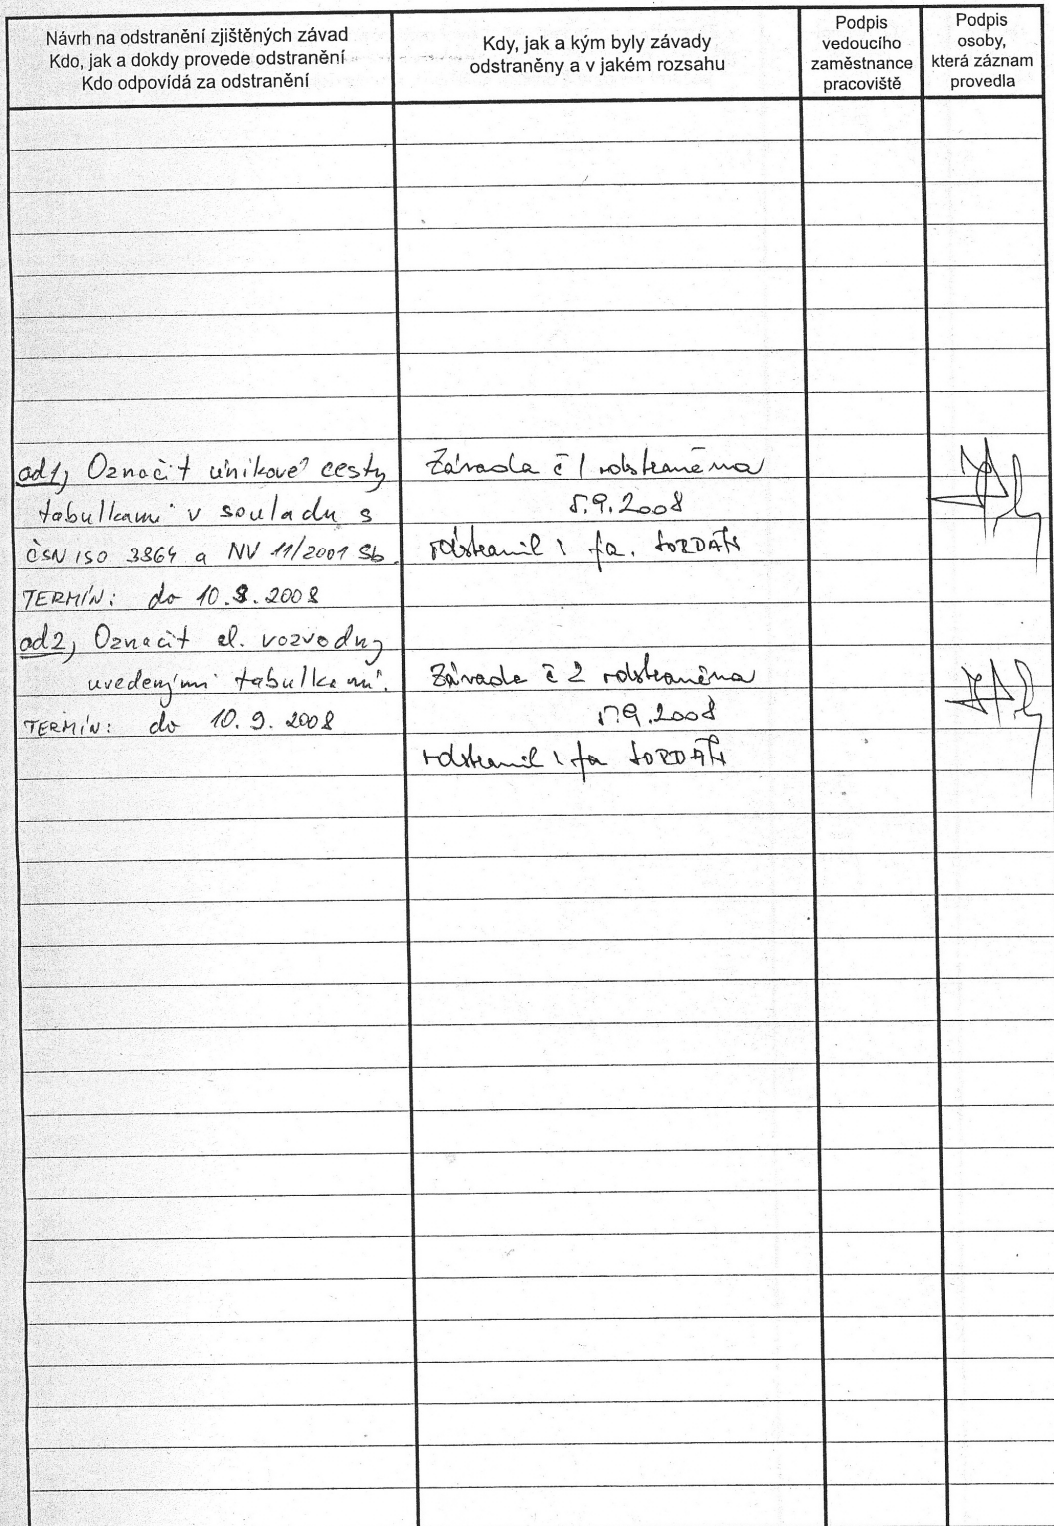 Návrh na odstranění zjištěných závad
Kdo, jak a dokdy provede odstranění
Kdo odpovídá za odstranění
Kdy, jak a kým byly závady
odstraněny a v jakém rozsahu
Podpis
vedoucího
zaměstnance
pracoviště
Podpis
osoby,
která záznam
provedla
ad1, Označit únikové cesty
tabulkami v souladu s
ČSN ISO 3864 a NV 11/2001 Sb.
TERMÍN: do 10.9.2008
ad2, Označit el. rozvodny
uvedenými tabulkami.
TERMÍN: do 10.9.2008
Závada č 1 odstraněna
5.9.2008
odstranil : fa.
Závada č 2 odstraněna
5.9.2008
odstranil : fa